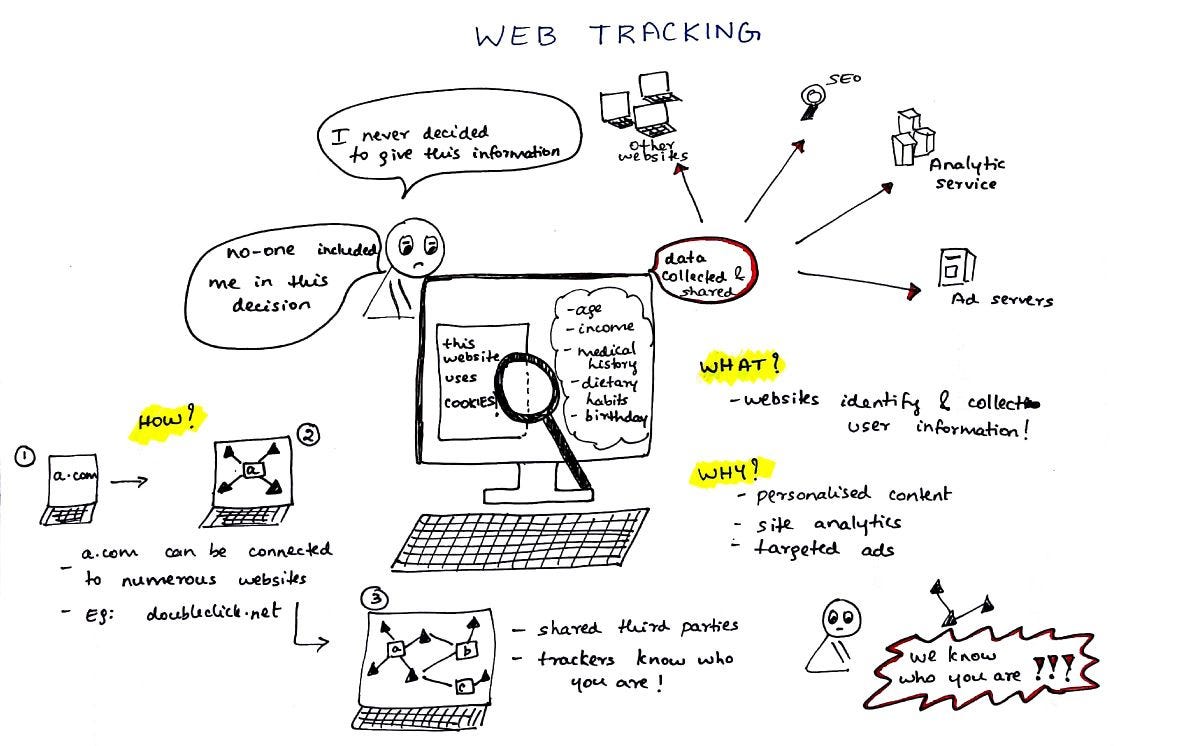 WEB TRACKING
I never decided
to give this information
no-one included
me in this
decision
other
websites
SEO
Analytic
service
data
collected &
shared
Ad servers
this
website
uses
COOKIES!
-age
-income
- medical
history
-dietary
habits
- birthday
WHAT?
-websites identify & collect
user information!
WHY?
- personalised content
- site analytics
- targeted ads
HOW?
1
a.com
2
a
- a.com can be connected
to numerous websites
- Eg: doubleclick.net
3
a
b
c
- shared third parties
- trackers know who
you are!
we know
who you are !!!